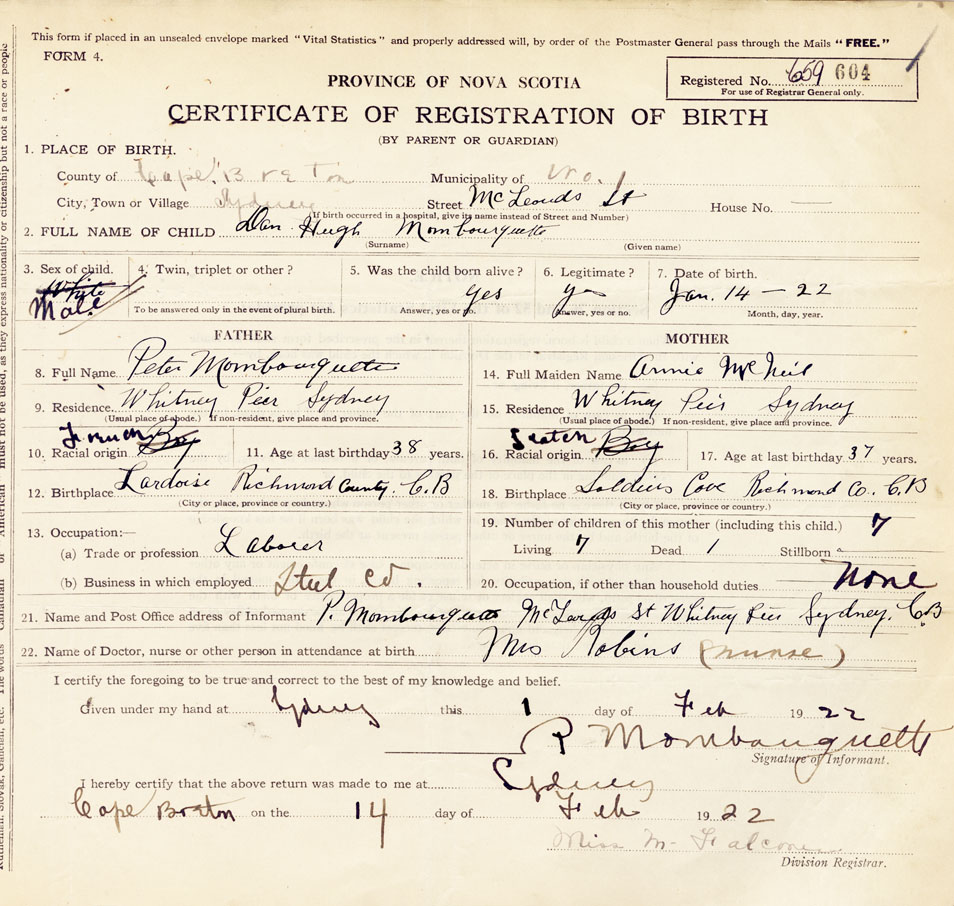 This form if placed in an unsealed envelope marked "Vital Statistics" and properly addressed will, by order of the Postmaster General pass through the Mails "FREE."
FORM 4.
PROVINCE OF NOVA SCOTIA
Registered No. 659 604
For use of Registrar General only.
CERTIFICATE OF REGISTRATION OF BIRTH
(BY PARENT OR GUARDIAN)
1. PLACE OF BIRTH.
County of Cape Breton Municipality of
City, Town or Village Sydney Street McLeouds St House No. —
(If birth occurred in a hospital, give its name instead of Street and Number)
2. FULL NAME OF CHILD Dan Hugh Mombourquette
(Surname) (Given name)
3. Sex of child. 4. Twin, triplet or other? 5. Was the child born alive? 6. Legitimate? 7. Date of birth.
White Male yes yes Jan. 14 — 22
To be answered only in the event of plural birth. Answer, yes or no. Answer, yes or no. Month, day, year.
FATHER MOTHER
8. Full Name Peter Mombourquette 14. Full Maiden Name Annie McNeil
9. Residence Whitney Pier Sydney 15. Residence Whitney Pier Sydney
(Usual place of abode.) If non-resident, give place and province. (Usual place of abode.) If non-resident, give place and province.
French Boy Scotch Boy
10. Racial origin 11. Age at last birthday 38 years. 16. Racial origin 17. Age at last birthday 37 years.
12. Birthplace Lardoise Richmond County. C.B 18. Birthplace Soldiers Cove Richmond Co. C.B
(City or place, province or country.) (City or place, province or country.)
13. Occupation:— 19. Number of children of this mother (including this child.) 7
(a) Trade or profession Laborer Living 7 Dead 1 Stillborn
(b) Business in which employed Steel Co. 20. Occupation, if other than household duties None
21. Name and Post Office address of Informant P. Mombourquette McLeods St Whitney Pier Sydney. C.B
22. Name of Doctor, nurse or other person in attendance at birth Mrs Robins (nurse)
I certify the foregoing to be true and correct to the best of my knowledge and belief.
Given under my hand at Sydney this 1 day of Feb 1922
P Mombourquette
Signature of Informant.
I hereby certify that the above return was made to me at Sydney
Cape Breton on the 14 day of Feb 1922
Miss M. Falconer
Division Registrar.